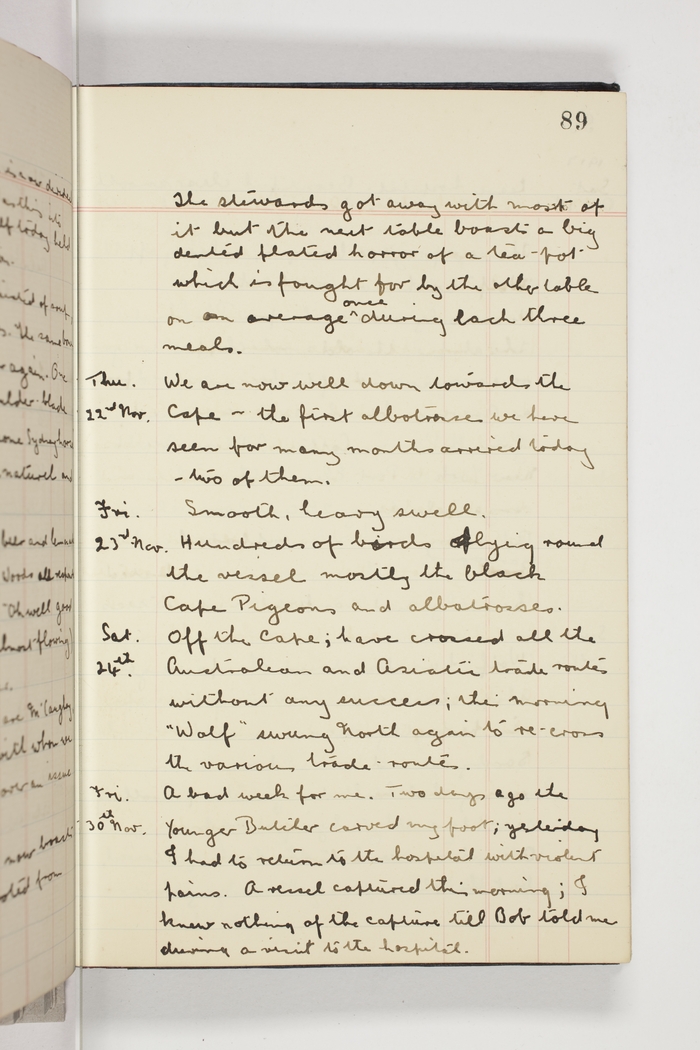 89
The stewards got away with most of
it but the next table boasts a big
dented plated horror of a tea-pot
which is fought for by the other table
on an average ^once during each three
meals.
Thu. We are now well down towards the
22nd Nov. Cape – the first albatrosses we have
seen for many months arrived today
- two of them.
Fri. Smooth, heavy swell.
23rd Nov. Hundreds of birds flying round
the vessel mostly the black
Cape Pigeons and albatrosses.
Sat. Off the Cape; have crossed all the
24th. Australian and Asiatic trade routes
without any success; this morning
"Wolf" swung North again to re-cross
the various trade-routes.
Fri. A bad week for me. Two days ago the
30th Nov. Younger Butcher carved my foot; yesterday
I had to return to the hospital with violent
pains. A vessel captured this morning; I
knew nothing of the capture till Bob told me
during a visit to the hospital.